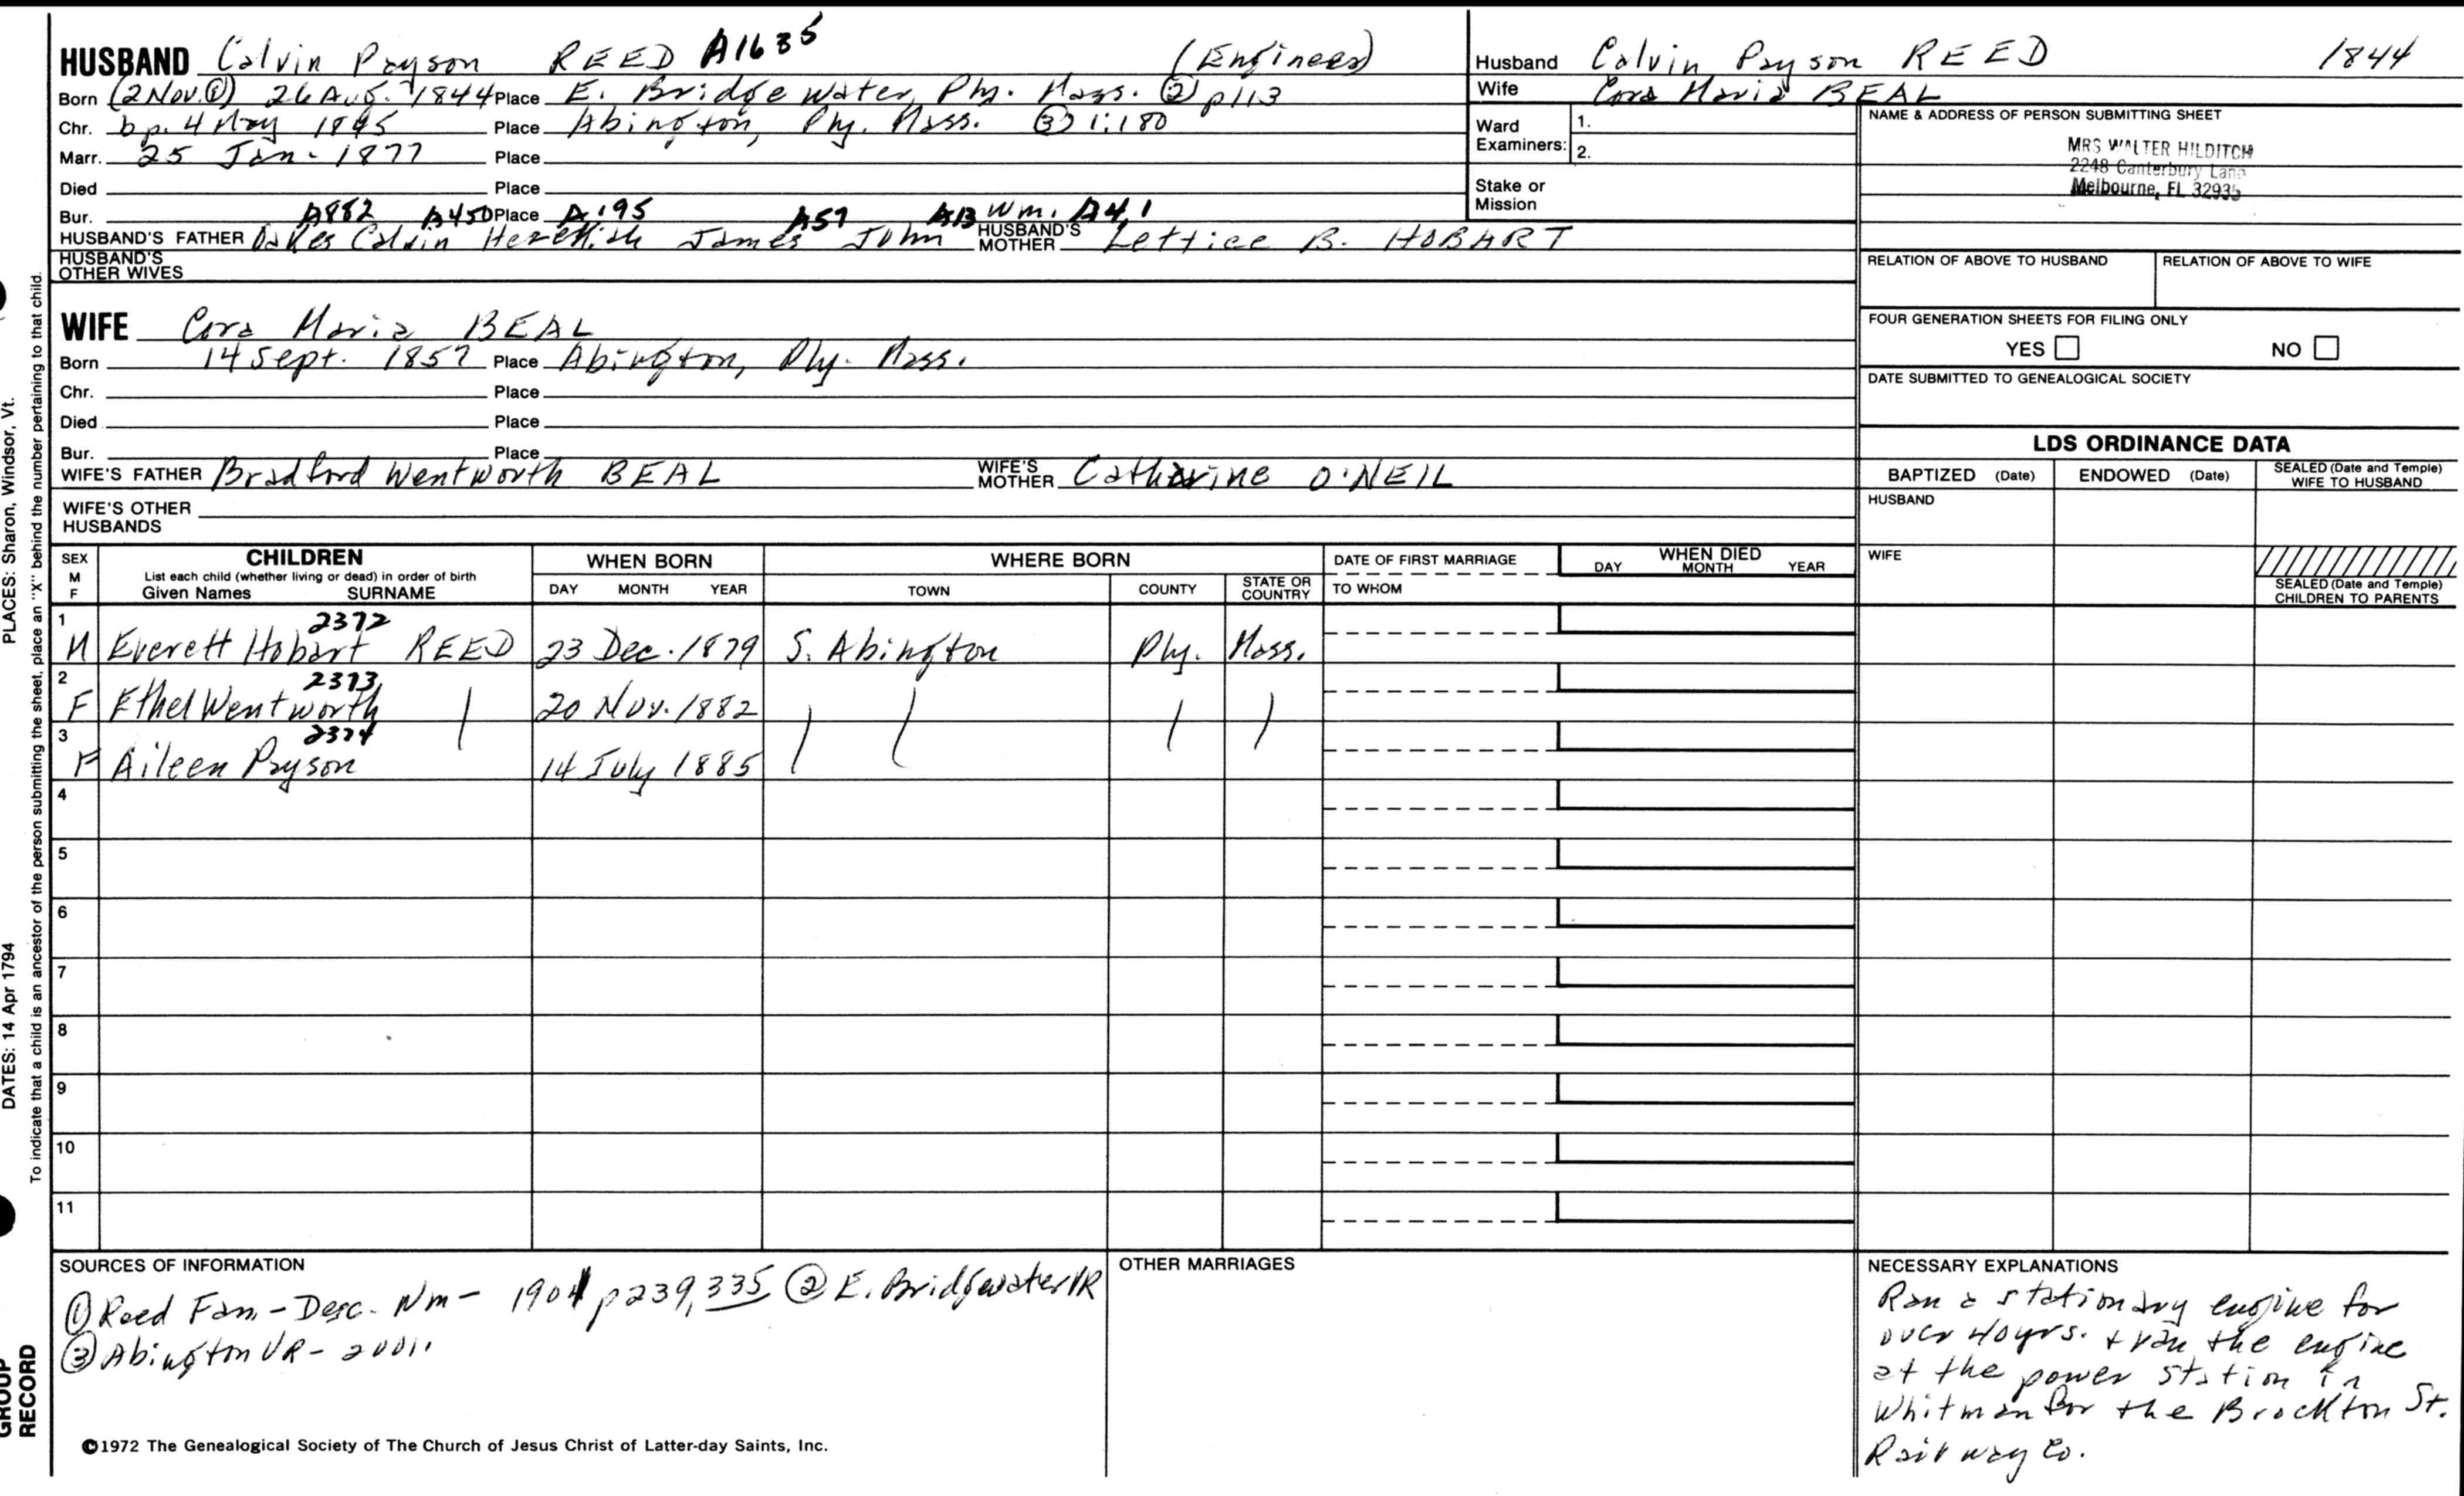 HUSBAND Calvin Payson REED A1635 (Engineer)
Born (2 Nov. ①) 26 Aug. 1844 Place E. Bridgewater, Ply. Mass. ② p113
Chr. bp. 4 May 1845 Place Abington, Ply. Mass. ③ 1:180
Marr. 25 Jan. 1877 Place
Died Place
Bur. Place
A882 A450 A195 A59 A13 Wm. A4,1
HUSBAND'S FATHER Oakes Calvin Hezekiah James John HUSBAND'S MOTHER Lettice B. HOBART
HUSBAND'S OTHER WIVES
Husband Calvin Payson REED 1844
Wife Cora Maria BEAL
Ward Examiners: 1.
2.
Stake or Mission
NAME & ADDRESS OF PERSON SUBMITTING SHEET
MRS WALTER HILDITCH
2248 Canterbury Lane
Melbourne, FL 32935
RELATION OF ABOVE TO HUSBAND RELATION OF ABOVE TO WIFE
FOUR GENERATION SHEETS FOR FILING ONLY
YES NO
DATE SUBMITTED TO GENEALOGICAL SOCIETY
WIFE Cora Maria BEAL
Born 14 Sept. 1857 Place Abington, Ply. Mass.
Chr. Place
Died Place
Bur. Place
WIFE'S FATHER Bradford Wentworth BEAL WIFE'S MOTHER Catharine O'NEIL
WIFE'S OTHER HUSBANDS
LDS ORDINANCE DATA
BAPTIZED (Date) ENDOWED (Date) SEALED (Date and Temple) WIFE TO HUSBAND
HUSBAND
WIFE
SEALED (Date and Temple) CHILDREN TO PARENTS
SEX M F
CHILDREN
List each child (whether living or dead) in order of birth
Given Names SURNAME
WHEN BORN
DAY MONTH YEAR
WHERE BORN
TOWN COUNTY STATE OR COUNTRY
DATE OF FIRST MARRIAGE
TO WHOM
WHEN DIED
DAY MONTH YEAR
1 2372
M Everett Hobart REED 23 Dec. 1879 S. Abington Ply. Mass.
2 2373
F Ethel Wentworth 20 Nov. 1882
3 2374
F Aileen Payson 14 July 1885
4
5
6
7
8
9
10
11
SOURCES OF INFORMATION
① Reed Fam - Desc. Wm - 1901 p239,335 ② E. Bridgewater VR
③ Abington VR -
OTHER MARRIAGES
NECESSARY EXPLANATIONS
Ran a stationary engine for
over 40 yrs. + ran the engine
at the power station in
Whitman for the Brockton St.
Railway Co.
©1972 The Genealogical Society of The Church of Jesus Christ of Latter-day Saints, Inc.
PLACES: Sharon, Windsor, Vt.
DATES: 14 Apr 1794
To indicate that a child is an ancestor of the person submitting the sheet, place an "X" behind the number pertaining to that child.
GROUP
RECORD